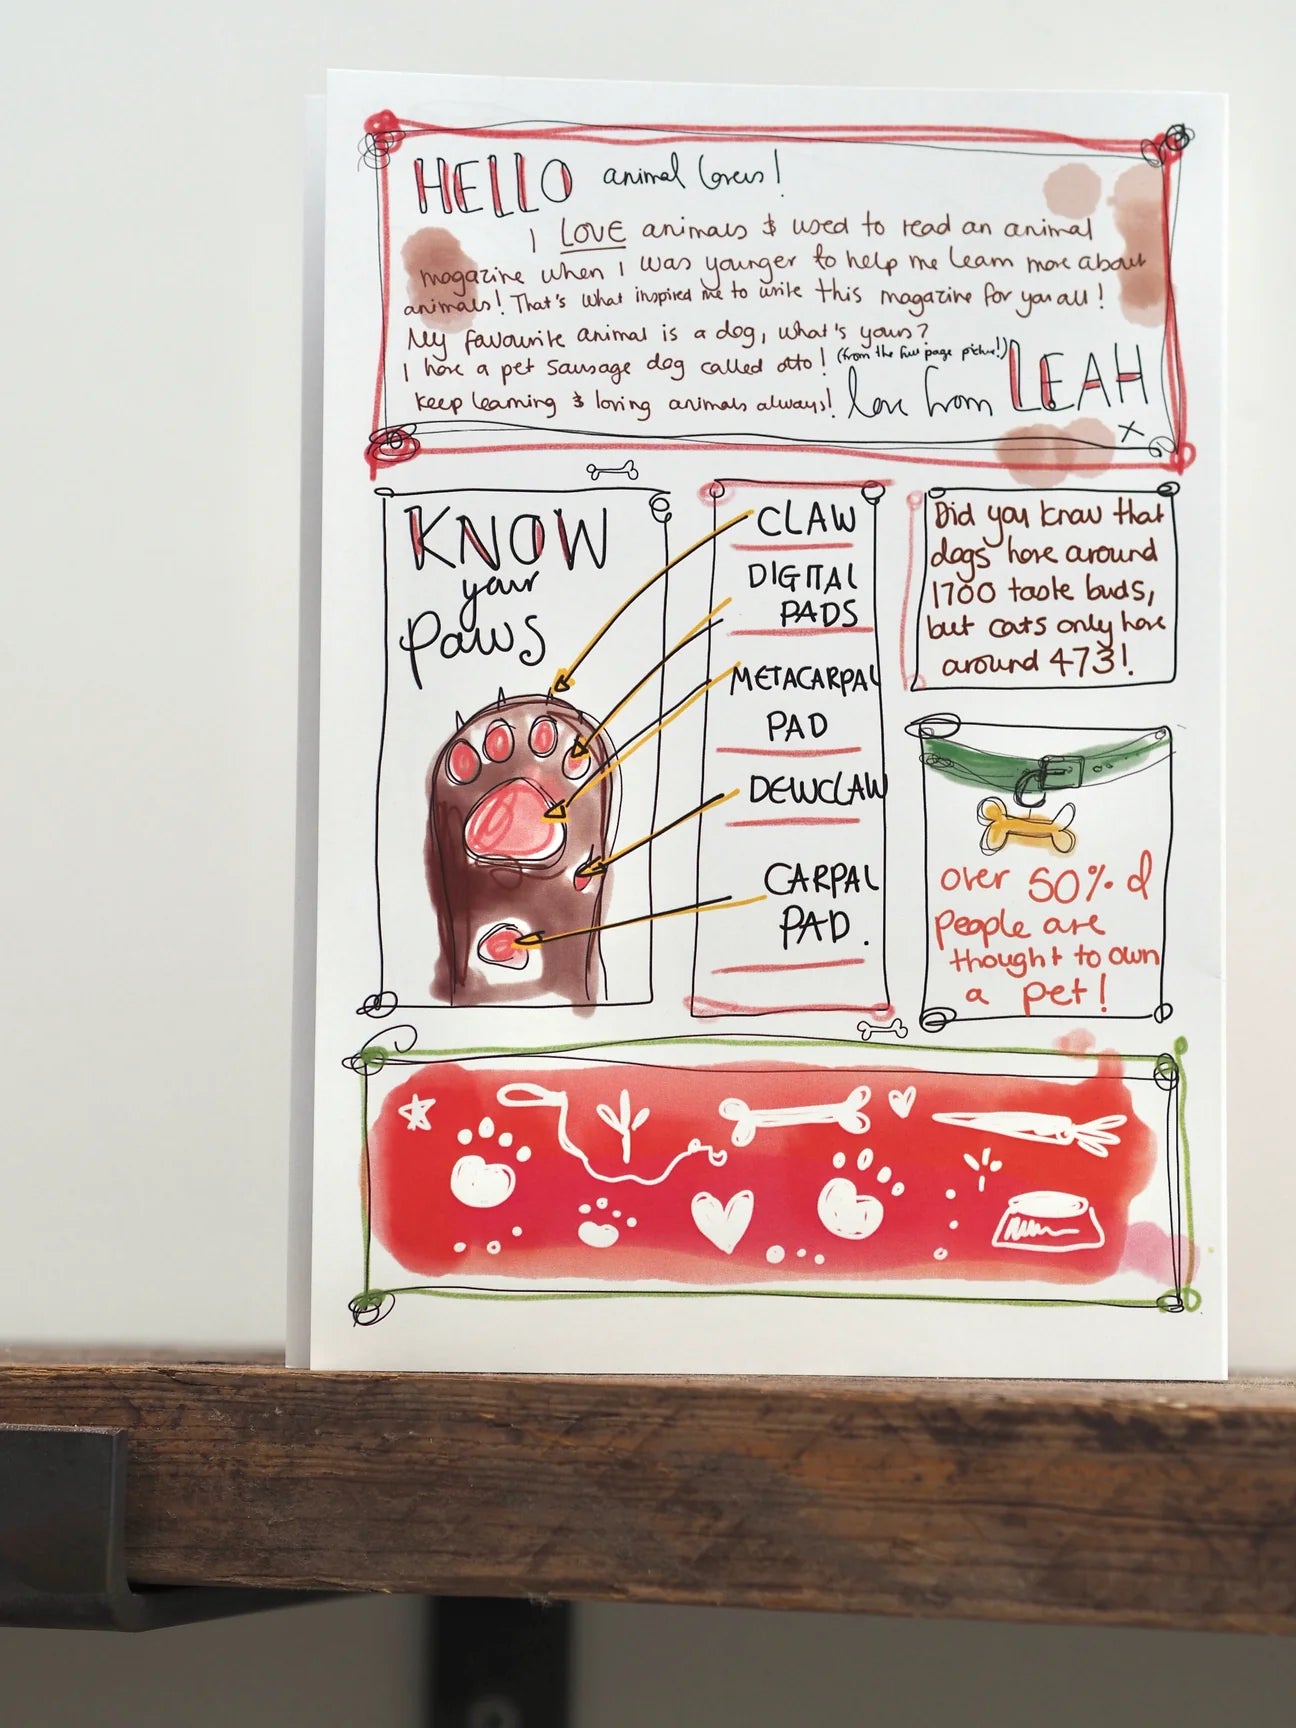 HELLO animal lovers!
I LOVE animals & used to read an animal
magazine when I was younger to help me learn more about
animals! That's what inspired me to write this magazine for you all!
My favourite animal is a dog, what's yours?
I have a pet sausage dog called otto! (from the full page picture!)
keep learning & loving animals always! love from LEAH
x
KNOW
your
paws
CLAW
DIGITAL
PADS
METACARPAL
PAD
DEWCLAW
CARPAL
PAD.
Did you know that
dogs have around
1700 taste buds,
but cats only have
around 473!
over 50% of
people are
thought to own
a pet!